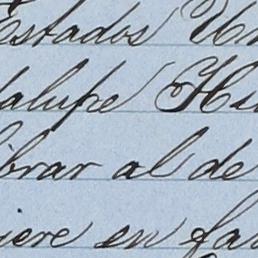 Estados Un
alupe Hi
brar al de
iere en fa